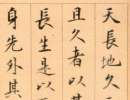 天長地久天
且久者以其
長生是以
身先外其